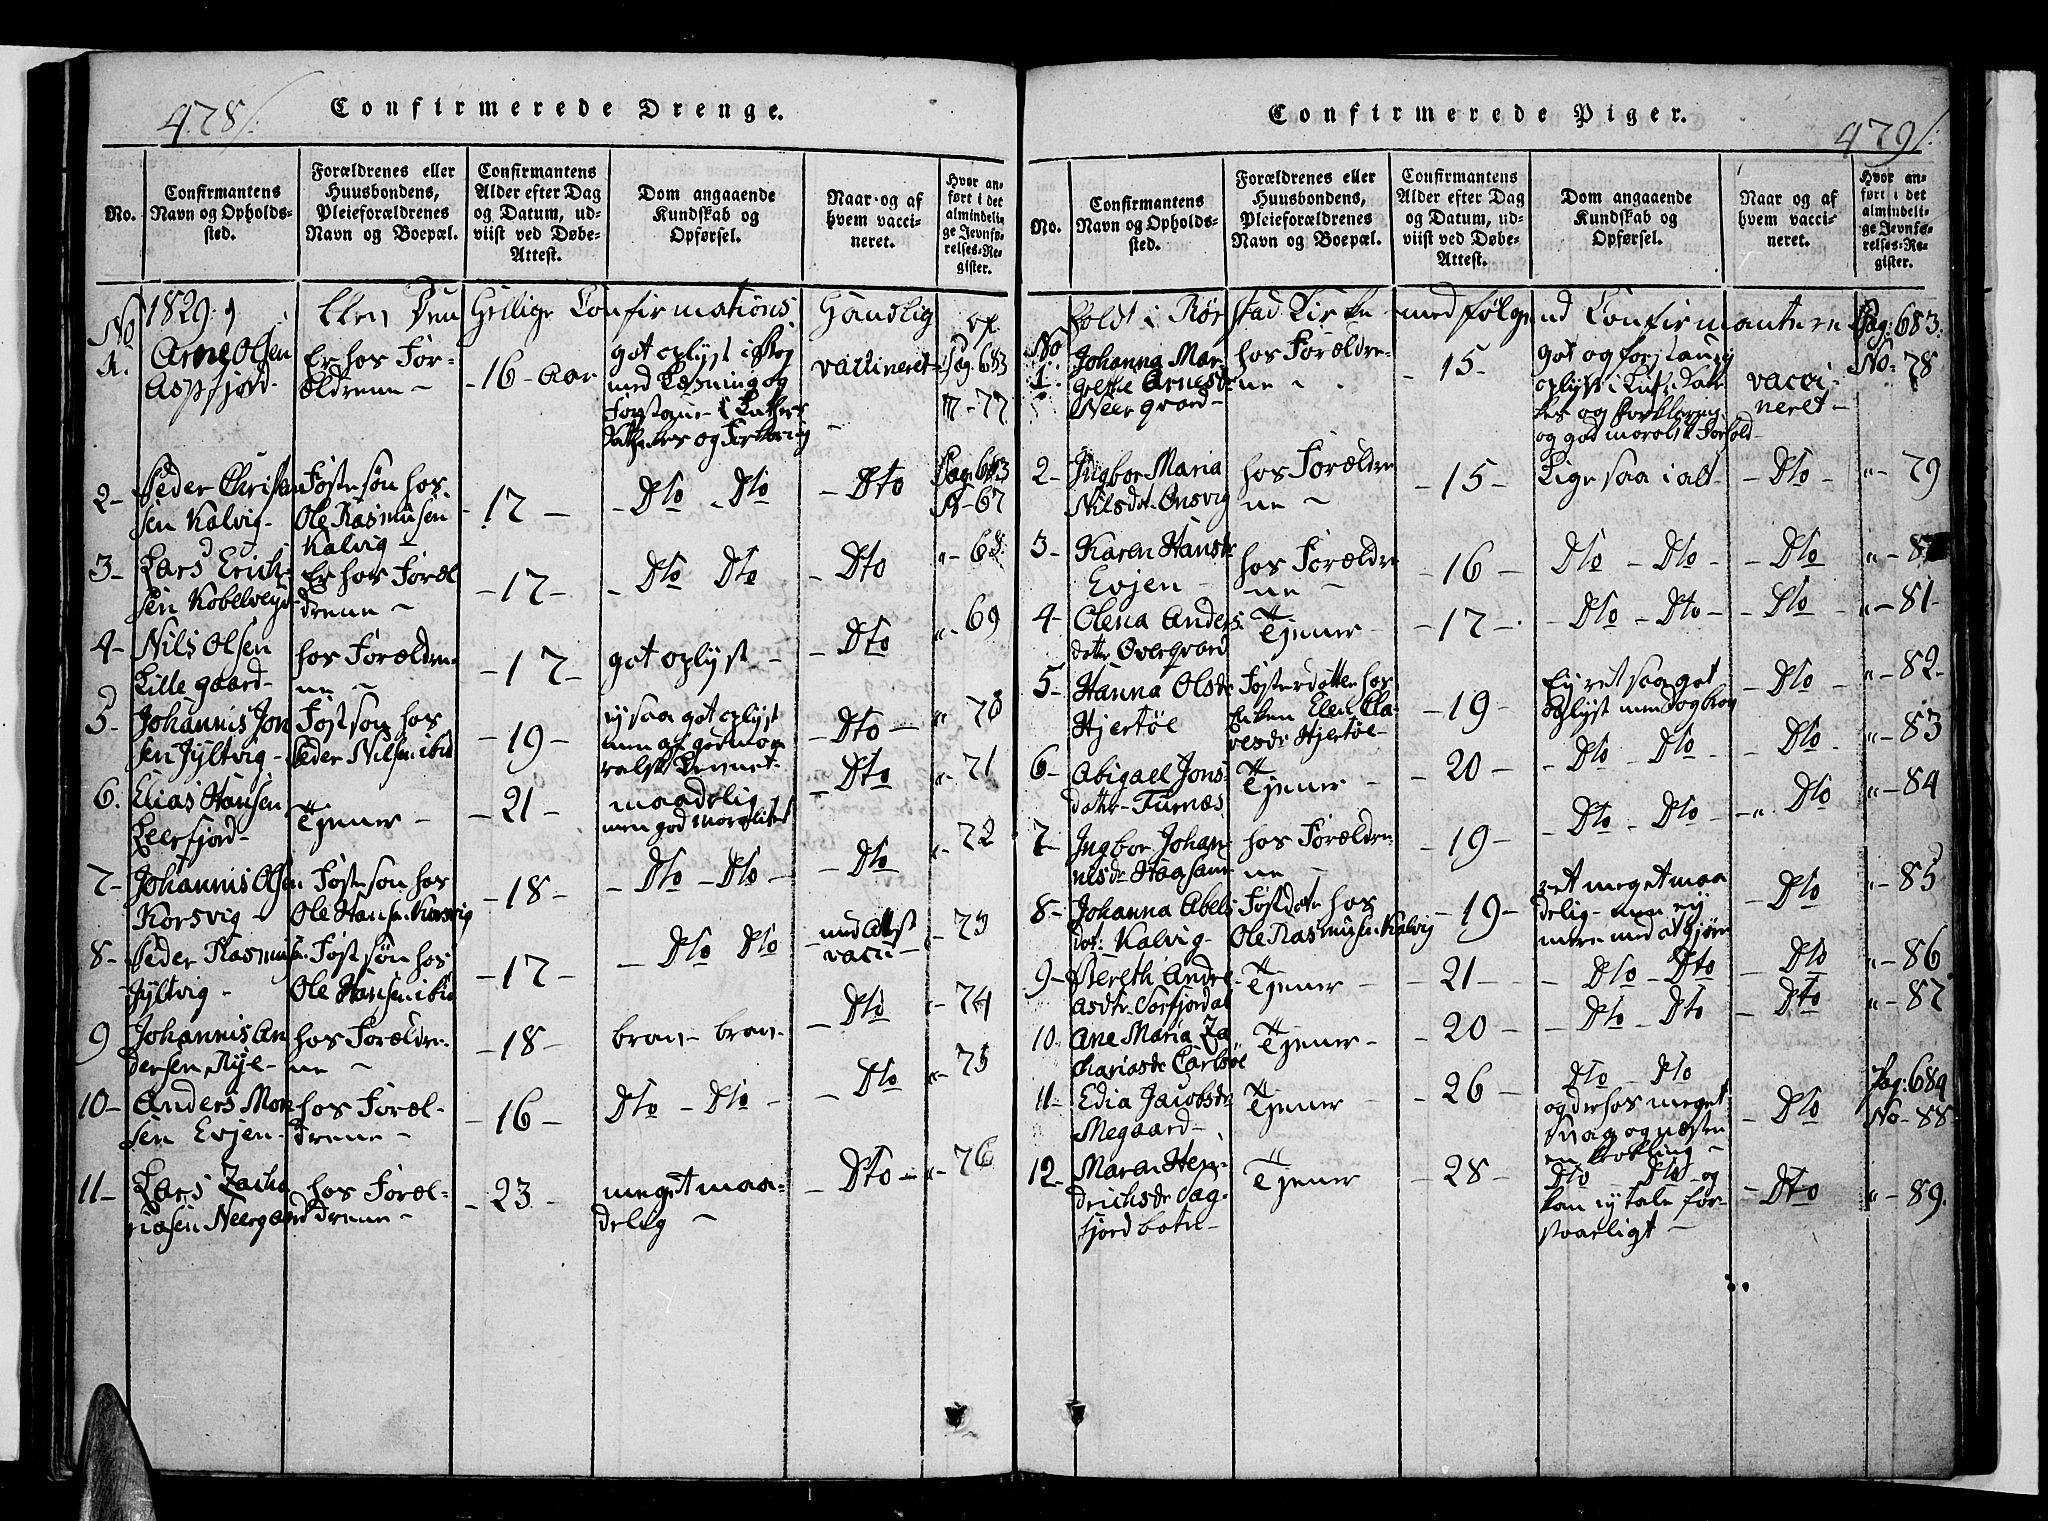 478/:
Confirmerede Drenge.
No.
Confirmantens Navn og Opholds-sted.
Forældrenes eller Huusbondens, Pleieforældrenes Navn og Boepæl.
Confirmantens Alder efter Dag og Datum, ud-viist ved Døbe-Attest.
Dom angaaende Kundskab og Opførsel.
Naar og af hvem vacci-neret.
Hvor an-ført i det almindeli-ge Jevnfø-relses-Re-gister.
1829, Den Hellige Confirmations
No
1. Arne Olsen Aspfjord- Er hos For-ældrene - -16-Aar got oplyst med Læsning og vaccineret Pag. 683 n-77
2- Peder Christen sen Kalvig- Føstesøn hos Ole Rasmusen Kalvig - -17- - Dto - Dto - Dto Pag: 683 N-67
3- Lars Erich-sen Kobelv Er hos Foræl drene - -17- - Dto Dto - Dto "-68
4- Nils Olsen Lille gaard- hos Forældre-ne - -17- got oplyst - - Dto "-69
5- Johannis Jon sen Jyltvig- Føstsøn hos Peder Nilsen ibid -19- ey saa got oplyst men af god mo ralsk - Dto - "-70
6. Elias Hansen Leerfjord- Tjener - -21- maadelig men god - Dto "-71
7- Johannis Olsen Korsvig - Føstsøn hos Ole Hansen Korsvig -18- - Dto - Dto - - Dto "-72
8- Peder Rasmus Jyltvig - Føstsøn hos Ole Hansen ibid -17- - Dto Dto med Attst vacci- -73
9 Johannis An dersen Rye- hos Forældre-ne - -18- brav - brav - - Dto "-74
10- Anders Mon sen Evjen- hos Foræl-drene - -16- Dto - Dto - - Dto "-75
11- Lars Zacha riasen Neergaard hos Foræl-drene - -23- meget maa-delig - - Dto - "-76
479/:
Confirmerede Piger.
No.
Confirmantens Navn og Opholds-sted.
Forældrenes eller Huusbondens, Pleieforældrenes Navn og Boepæl.
Confirmantens Alder efter Dag og Datum, ud-viist ved Døbe-Attest.
Dom angaaende Kundskab og Opførsel.
Naar og af hvem vacci-neret.
Hvor an-ført i det almindeli-ge Jevnfø-relses-Re-gister.
holdt i Rørstad Kirke med følgend Confirmantere Pag: 683.
No
1- Johanna Mar grethe Arnesdr Neergaard- hos Forældre-ne - -15- got og forstandig oplyst i og Forklaring og god moralsk Forhold vacci-neret- No-78
2- Ingbor Maria Nilsdr Onsvig hos Forældre ne - -15- Lige saa i alt - Dto - "-79
3- Karen Hansdr Evjen - hos Forældre ne - -16- Dto - Dto - - Dto
4- Olena Anders dotter Overgaard Tjener - -17- - Dto - Dto - - Dto "-81-
5- Hanna Olsdr Hjertøe Fosterdotter hos Enken Elen Cla-vesdr Hjertøe- -19- Ey ret saa got oplyst men dog - Dto - "-82-
6- Abigael Jons-dotter Furnæs Tjener - -20- - Dto - Dto - - Dto - "-83
7- Ingbor Johan nisdr hos Forældre-ne - -19- - Dto - Dto - -". Dto "-84
8- Johanna Abels dotr: Kalvig- Føstdotr hos Ole Rasmusen Kalvig -19- ret meget maa delig - men ey mere med at gjøre - Dto "-85
9- Bereth Andre-asdtr Sørfjordal Tjener - -21- - Dto - Dto - Dto "-86
10. Ane Maria Za chariasdr Carlsøe Tjener - -20- - Dto - Dto - Dto "-87
11- Edia Jacobsdr Megaard- Tjener -26- Dto - Dto og derhos meget svag og næsten en krøbling - - Dto Pag: 684 No-88-
12- Maren Hen-drichsdr Sag-fjord botn- Tjener -28- Dto - Dto - og kan ey tale for-staarligt - - Dto "-89.